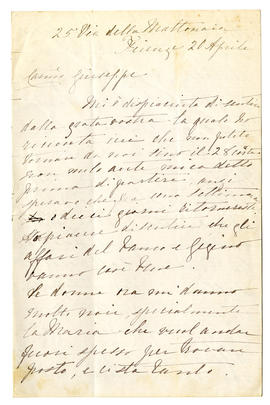 25 Via della Mattonaia
Firenze 20 Aprile
Caro Giuseppe.
Mi è dispiaciuto di sentire
dalla grata vostra la quale ho
ricevuta ieri che non potete
tornar da noi fino il 28
non avete mica detto
prima di partire anzi
che una settimana
o dieci giorni
dispiace di sentire che gli
affari del Banco e
vanno così bene.
Le donne ora mi danno
molte noie, specialmente
la Maria che vuol andar
fuori spesso per trovar
posto, e ci sta tanto.